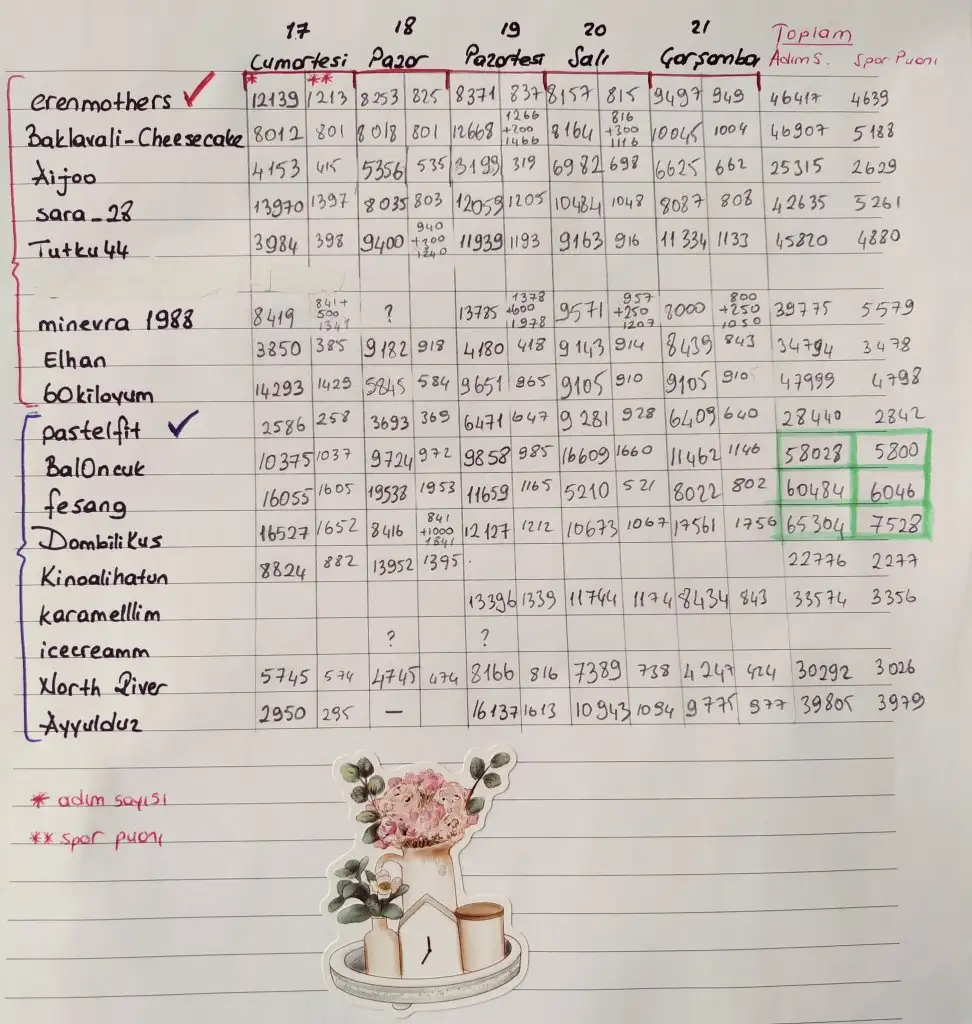 17 18 19 20 21 Toplam
Cumartesi Pazar Pazartesi Salı Çarşamba Adım S. Spor Puanı
* **
erenmothers ✓ 12139 1213 8253 825 8371 837 8157 815 9497 949 46417 4639
Baklavali-Cheesecake 8012 801 8018 801 12668 1266 +200 1466 8164 816 +300 1116 10045 1004 46907 5188
Aijoo 4153 415 5356 535 3199 319 6982 698 6625 662 25315 2629
sara_28 13970 1397 8035 803 12059 1205 10484 1048 8087 808 42635 5261
Tutku44 3984 398 9400 940 +300 1240 11939 1193 9163 916 11334 1133 45820 4880
minevra 1988 8419 841+ 500 1341 ? 13785 1378 +600 1978 9571 957 +250 1207 8000 800 +250 1050 39775 5579
Elhan 3850 385 9182 918 4180 418 9143 914 8439 843 34794 3478
60kiloyum 14293 1429 5845 584 9651 965 9105 910 9105 910 47999 4798
pastelfit ✓ 2586 258 3693 369 6471 647 9281 928 6409 640 28440 2842
BalOncuk 10375 1037 9724 972 9858 985 16609 1660 11462 1146 58028 5800
fesang 16055 1605 19538 1953 11659 1165 5210 521 8022 802 60484 6046
Dombilikus 16527 1652 8416 841 +1000 1841 12127 1212 10673 1067 17561 1756 65304 7528
Kinoalihatun 8824 882 13952 1395 22776 2277
karamelllim 13396 1339 11744 1174 8434 843 33574 3356
icecreamm ? ?
North River 5745 574 4745 474 8166 816 7389 738 4247 424 30292 3026
Ayyulduz 2950 295 — 16137 1613 10943 1094 9775 977 39805 3979
* adım sayısı
** spor puanı